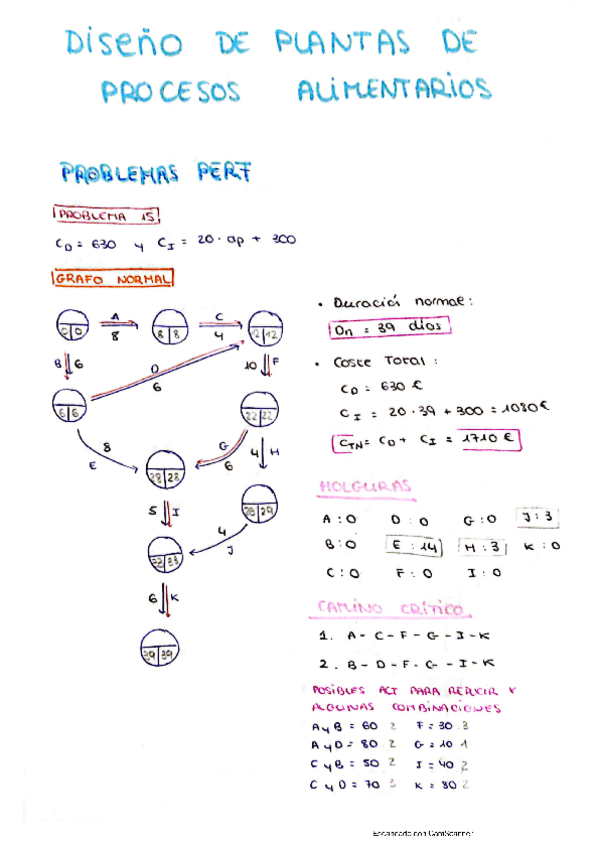 Diseño DE PLANTAS DE
PROCESOS ALIMENTARIOS
PROBLEMAS PERT
PROBLEMA 15
CD = 630 y CI = 20 · ap + 300
GRAFO NORMAL
A
8
C
4
0 0
8 8
12 12
B 6
D
6
10 F
6 6
22 22
8
E
G
6
4 H
28 28
5 I
4
J
33
6 K
39 39
• Duración normal:
Dn = 39 días
• Coste Total:
CD = 630 €
CI = 20 · 39 + 300 = 1080 €
CTN = CD + CI = 1710 €
HOLGURAS
A : 0 D : 0 G : 0 J : 3
B : 0 E : 14 H : 3 K : 0
C : 0 F : 0 I : 0
CAMINO CRÍTICO
1. A - C - F - G - I - K
2. B - D - F - G - I - K
POSIBLES ACT PARA REDUCIR Y
ALGUNAS COMBINACIONES
A y B = 60 2 F = 30 3
A y D = 80 2 G = 10 1
C y B = 50 2 I = 40 2
C y D = 70 3 K = 80 2
Escaneado con CamScanner